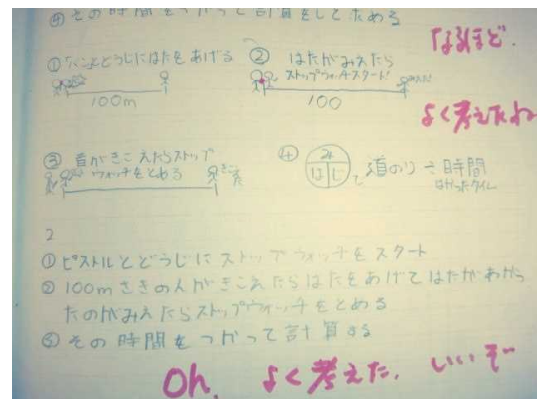 ④その時間をつかって計算をしともとめる
なるほど.
①たいことどうじにはたをあげる
100m
② はたがみえたら
ストップウォッチスタート!
100
よく考えたね
③ 音がきこえたらストップ
ウォッチをとめる
④ み
は じ
で 道のり÷時間
はかったタイム
2
①ピストルとどうじにストップウォッチをスタート
②100mさきの人がきこえたらはたをあげてはたがあがっ
たのがみえたらストップウォッチをとめる
③その時間をつかって計算する
Oh. よく考えた. いいぞ